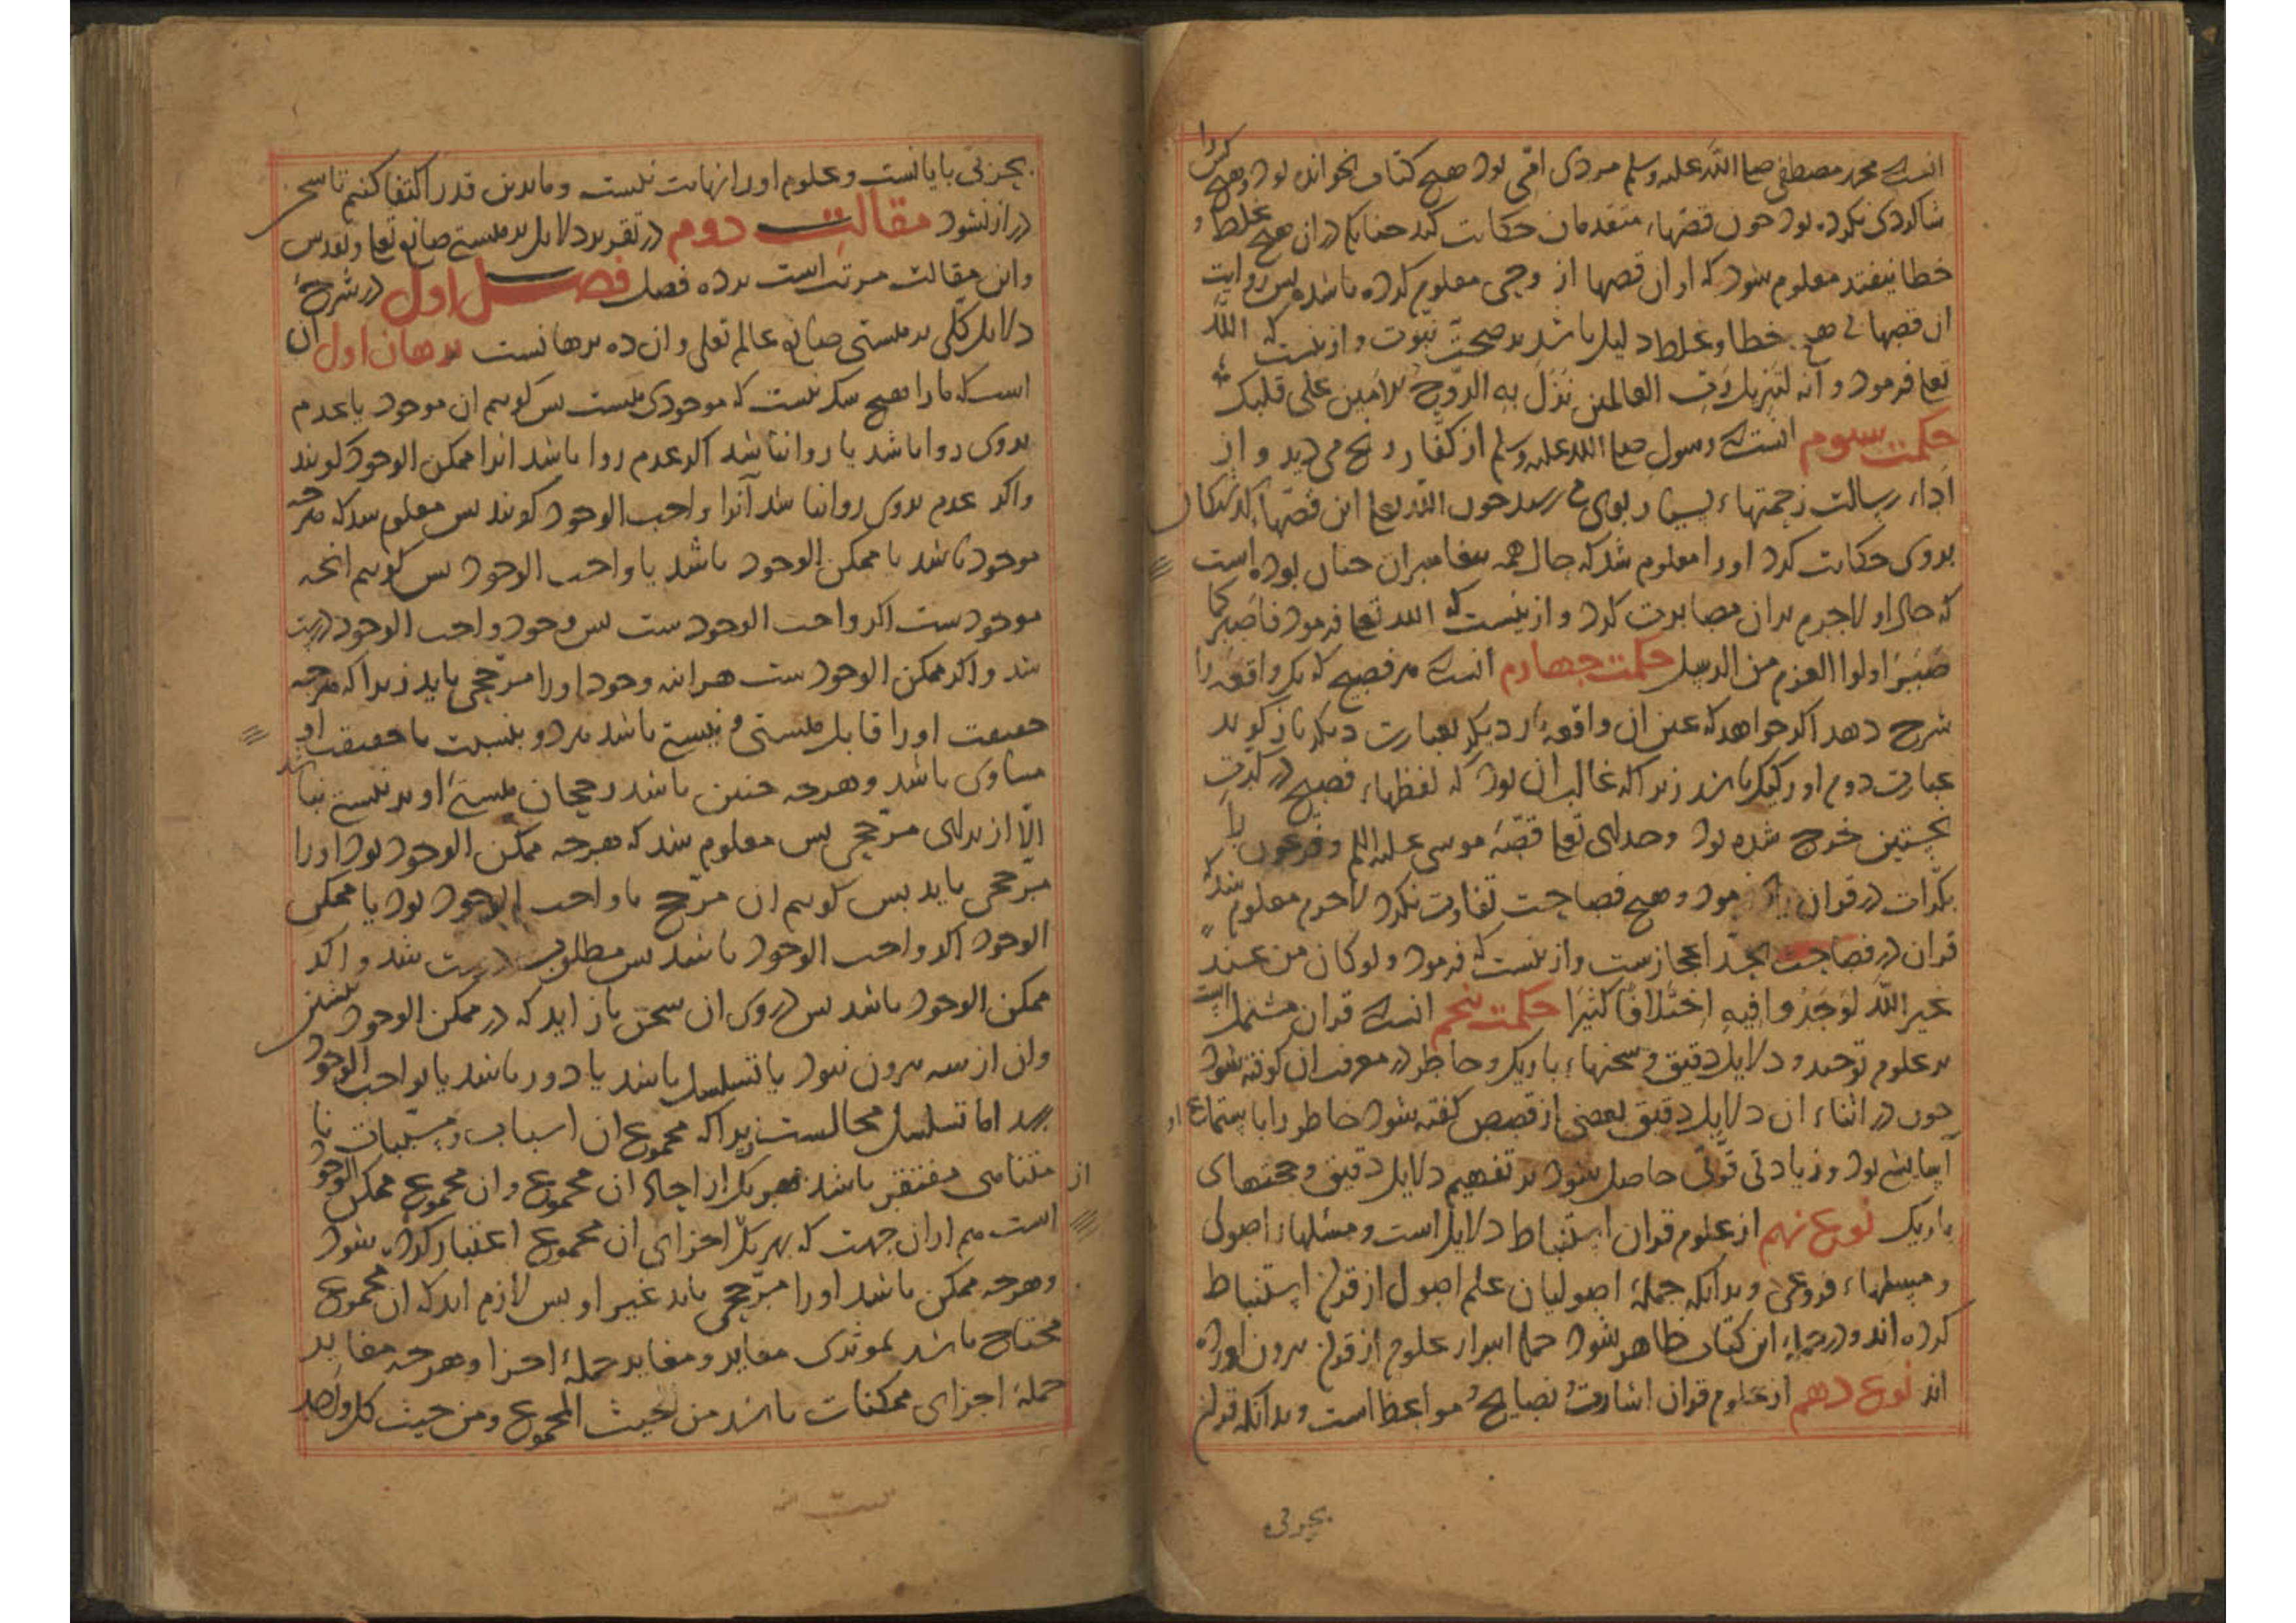 انست که محمد مصطفی صلی الله علیه وسلم مردی امّی بود هیچ کتاب نخوانده بود و هیچ کس را
شاکردی نکرده بود چون قصّهاء متقدمان حکایت کند چنانک در ان هیچ غلط و
خطا نیفتد معلوم شود که او ان قصها از وحی معلوم کرده باشد پس روایت
ان قصها بی هیچ خطا و غلط دلیل باشد بر صحّت نبوّت و ازینست که اللّه
تعا فرمود و انه لتنزیل رَبّ العالمین نَزَلَ بِهِ الرّوحُ الامین علی قلبک
حکمت سوم انست که رسول صلی الله علیه وسلم از کفّار رنج می دید و از
اداء رسالت زحمتهاء بسیار بوی می رسید چون اللّه تعا این قصّهاء
بروی حکایت کرد او را معلوم شد که حال همه پیغامبران چنان بوده است
که حال او لاجرم بران مصابرت کرد و ازینست که الله تعا فرمود فاَصْبِر کما
صَبَرَ اولوا العزم من الرسل حکمت چهارم انست که هر فصیح که یک واقعه را
شرح دهد اکر خواهد که عین ان واقعه بار دیکر بعبارت دیکر باز کوید
عبارت دوم او رکیک باشد زیرا که غالب ان بود که لفظهاء فصیح در کرّتِ
نخستین خرج شده بود و خدای تعا قصّهٔ موسی علیه السلم و فرعون را
بکرّات در قران یاد فرمود و هیچ فصاحت تفاوت نکرد لاجرم معلوم شد که
قران در فصاحت بحدّ اعجازست و ازینست که فرمود و لو کان من عند
غیر اللّه لَوَجَدُوا فیهِ اِختلافًا کثیرًا حکمت پنجم انست که قران مشتمل است
بر علوم توحید و دلایل دقیق و سخنهاء باریک و خاطر در معرفت ان کوفته شود
چون در اثناء ان دلایل دقیق بعضی از قصص کفته شود خاطر را باستماع او
آسایش بود و زیادتی قوّتی حاصل شود بر تفهیم دلایل دقیق و حجتهای
باریک نوع نهم از علوم قران استنباط دلایل است و مسئلها اصولی
و فروعی و بدانکه جملهٔ اصولیان علم اصول از قران استنباط
کرده اند و در این کتاب ظاهر شود اسرار علوم از قران بیرون اورده
اند نوع دهم از علوم قران اشارت نصایح و مواعظ است و بدانکه قران
بحریست بی پایانست و علوم او را نهایت نیست و ما بدین قدر اکتفا کنیم تا سخن
دراز نشود مقالت دوم در تقریر دلایل بر هستی صانع تعا و تقدس
و این مقالت مرتب است بر ده فصل فصل اول در شرح
دلایل کلّی بر هستی صانع عالم تعلی و ان ده برهانست برهان اول ان
است که ما را هیچ شک نیست که موجودی هست پس کوییم ان موجود یا عدم
بروی روا باشد یا روا نباشد اکر عدم روا باشد انرا ممکن الوجود کویند
و اکر عدم بروی روا نباشد آنرا واجب الوجود کویند پس معلوم شد که هرچه
موجود باشد یا ممکن الوجود باشد یا واجب الوجود پس کوییم انچه
موجودست اکر واجب الوجودست پس وجود واجب الوجود درست
شد و اکر ممکن الوجودست هراینه وجود او را مرجّحی باید زیرا که هرچه
حقیقت او را قابل هستی و نیستی باشد هر دو بنسبت با حقیقت او
مساوی باشد و هرچه چنین باشد رجحان هستئ او بر نیستی نباشد
الّا از برای مرجّحی پس معلوم شد که هرچه ممکن الوجود بود او را
مرجّحی باید پس کوییم ان مرجّح یا واجب الوجود بود یا ممکن
الوجود اکر واجب الوجود باشد پس مطلوب درست شد و اکر
ممکن الوجود باشد پس در وی ان سخن باز اید که در ممکن الوجود پیشین
و این از سه بیرون نبود یا تسلسل باشد یا دور باشد یا بواجب الوجود
رسد اما تسلسل محالست زیرا که مجموع ان اسباب و مسببات نا
متناهی مفتقر باشد بهر یک از احاد ان مجموع و ان مجموع ممکن الوجود
است هم از ان جهت که بهر یک از اجزای ان مجموع اعتبار کرده شود
و هرچه ممکن باشد او را مرجّحی باید غیر او پس لازم اید که ان مجموع
محتاج باشد بموثری مغایر و مغایر جملهٔ اجزا و هرچه مغایر
جملهٔ اجزای ممکنات باشد من حیث المجموع و من حیث کل واحد